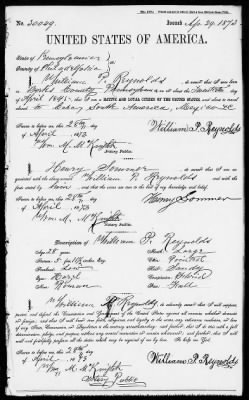 No. 30049. Issued Ap. 29. 1873
UNITED STATES OF AMERICA.
State of Pennsylvania
County of Philadelphia
I, William P. Reynolds do swear that I was born
in Berks County Pennsylvania on or about the
April 1845, that I am a NATIVE AND LOYAL CITIZEN OF THE UNITED STATES, and about to
travel South America, Mexico &c
Sworn to before me, this 28th
day of April 1873
William P. Reynolds
Wm. M. McKnight
Notary Public.
I, Henry Sommer do swear that I am
acquainted with the above-named William P. Reynolds and with the
facts
Sworn to before me, this 28th
day of April 1873
Henry Sommer
Wm. M. McKnight
Notary Public.
Description of William P. Reynolds
Age, 28 years
Stature, 5 feet inches, Eng.
Forehead, Low
Eyes, Hazel
Nose, Roman
Mouth, Large
Chin, Pointed
Hair, Sandy
Complexion,
Face, Full
I, William P. Reynolds do solemnly swear that I will support,
protect, and defend the Constitution and Government of the United States against all enemies, whether domestic
or foreign; and that I will bear true faith, allegiance, and loyalty to the same, any ordinance, resolution, or law
of any State, Convention, or Legislature to the contrary notwithstanding; and further, that I do this with a full
determination, pledge, and purpose, without any mental reservation or evasion whatsoever; and further, that I
will well and faithfully perform all the duties which may be required of me by law: So help me God.
Sworn to before me, this 28th
day of April 1873
William P. Reynolds
Wm. M. McKnight
Notary Public